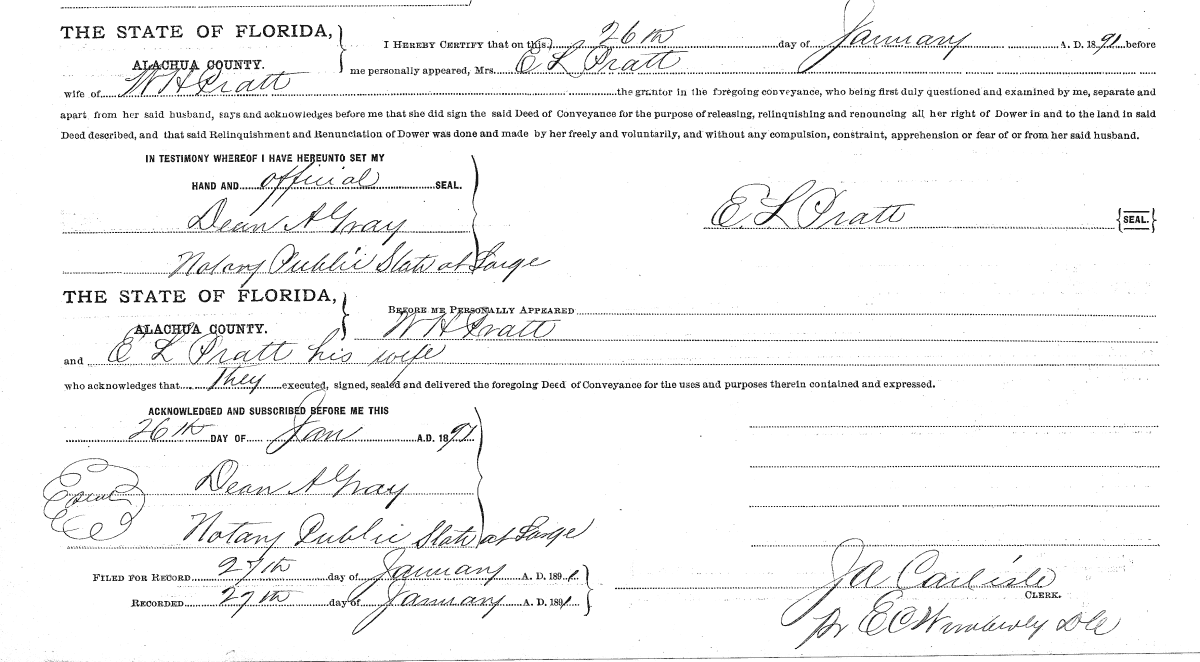 THE STATE OF FLORIDA,
ALACHUA COUNTY.
I HEREBY CERTIFY that on this 26th day of January A. D. 1891 before
me personally appeared, Mrs. E L Pratt
wife of W H Pratt the grantor in the foregoing conveyance, who being first duly questioned and examined by me, separate and
apart from her said husband, says and acknowledges before me that she did sign the said Deed of Conveyance for the purpose of releasing, relinquishing and renouncing all her right of Dower in and to the land in said
Deed described, and that said Relinquishment and Renunciation of Dower was done and made by her freely and voluntarily, and without any compulsion, constraint, apprehension or fear of or from her said husband.
IN TESTIMONY WHEREOF I HAVE HEREUNTO SET MY
HAND AND official SEAL.
Dean A Gray
E. L Pratt {SEAL.}
Notary Public State at Large
THE STATE OF FLORIDA,
ALACHUA COUNTY.
BEFORE ME PERSONALLY APPEARED
W H Pratt
and E L Pratt his wife
who acknowledges that they executed, signed, sealed and delivered the foregoing Deed of Conveyance for the uses and purposes therein contained and expressed.
ACKNOWLEDGED AND SUBSCRIBED BEFORE ME THIS
26th DAY OF Jan A.D. 1891
Dean A Gray
Notary Public State at Large
FILED FOR RECORD 27th day of January A. D. 1891
RECORDED 27th day of January A. D. 1891
J A Carlisle
CLERK.
Pr E C Wimberly D C